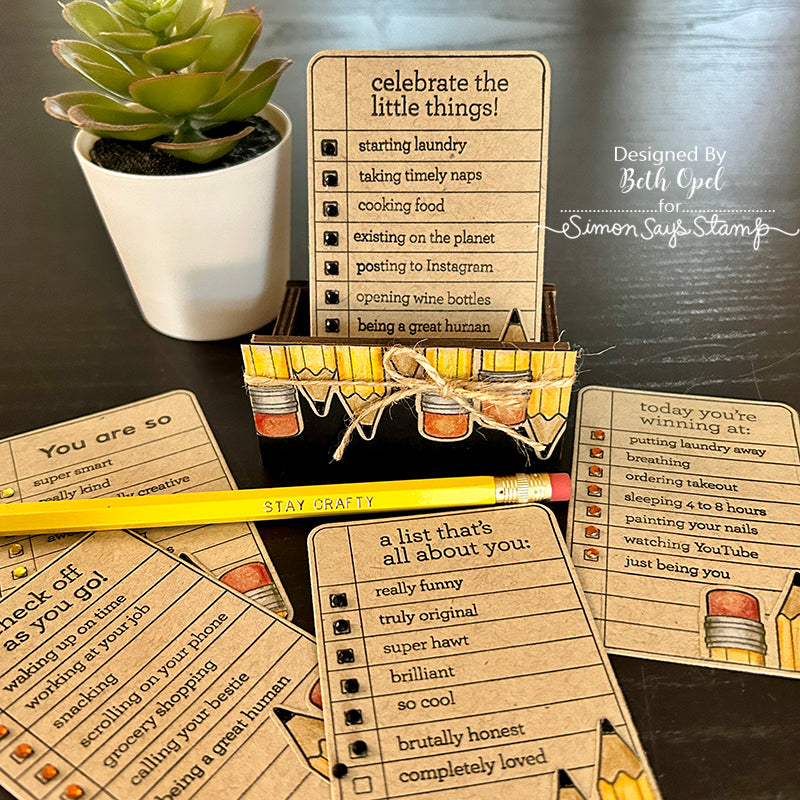 celebrate the
little things!
starting laundry
taking timely naps
cooking food
existing on the planet
posting to Instagram
opening wine bottles
being a great human
Designed By
Beth Opel
for
Simon Says Stamp
You are so
super smart
really kind
creative
STAY CRAFTY
today you're
winning at:
putting laundry away
breathing
ordering takeout
sleeping 4 to 8 hours
painting your nails
watching YouTube
just being you
a list that's
all about you:
really funny
truly original
super hawt
brilliant
so cool
brutally honest
completely loved
check off
as you go!
waking up on time
working at your job
snacking
scrolling on your phone
grocery shopping
calling your bestie
being a great human